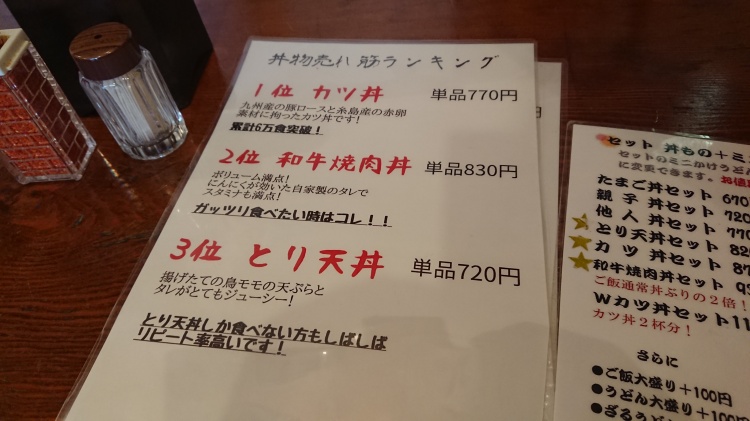 丼物売れ筋ランキング
1位 カツ丼 単品770円
九州産の豚ロースと糸島産の赤卵
素材に拘ったカツ丼です!
累計6万食突破!
2位 和牛焼肉丼 単品830円
ボリューム満点!
にんにくが効いた自家製のタレで
スタミナも満点!
ガッツリ食べたい時はコレ!!
3位 とり天丼 単品720円
揚げたての鳥モモの天ぷらと
タレがとてもジューシー!
とり天丼しか食べない方もしばしば
リピート率高いです!
円
セット 丼もの+ミ
セットのミニかけうどん
に変更できます。お値
たまご丼セット 670
親子丼セット 720
他人丼セット 770
とり天丼セット 82
カツ丼セット
和牛焼肉丼セット 9
ご飯通常丼ぶりの2倍!
Wカツ丼セット 11
カツ丼2杯分!
さらに
●ご飯大盛り+100円
●うどん大盛り+100円
●ざるうどん